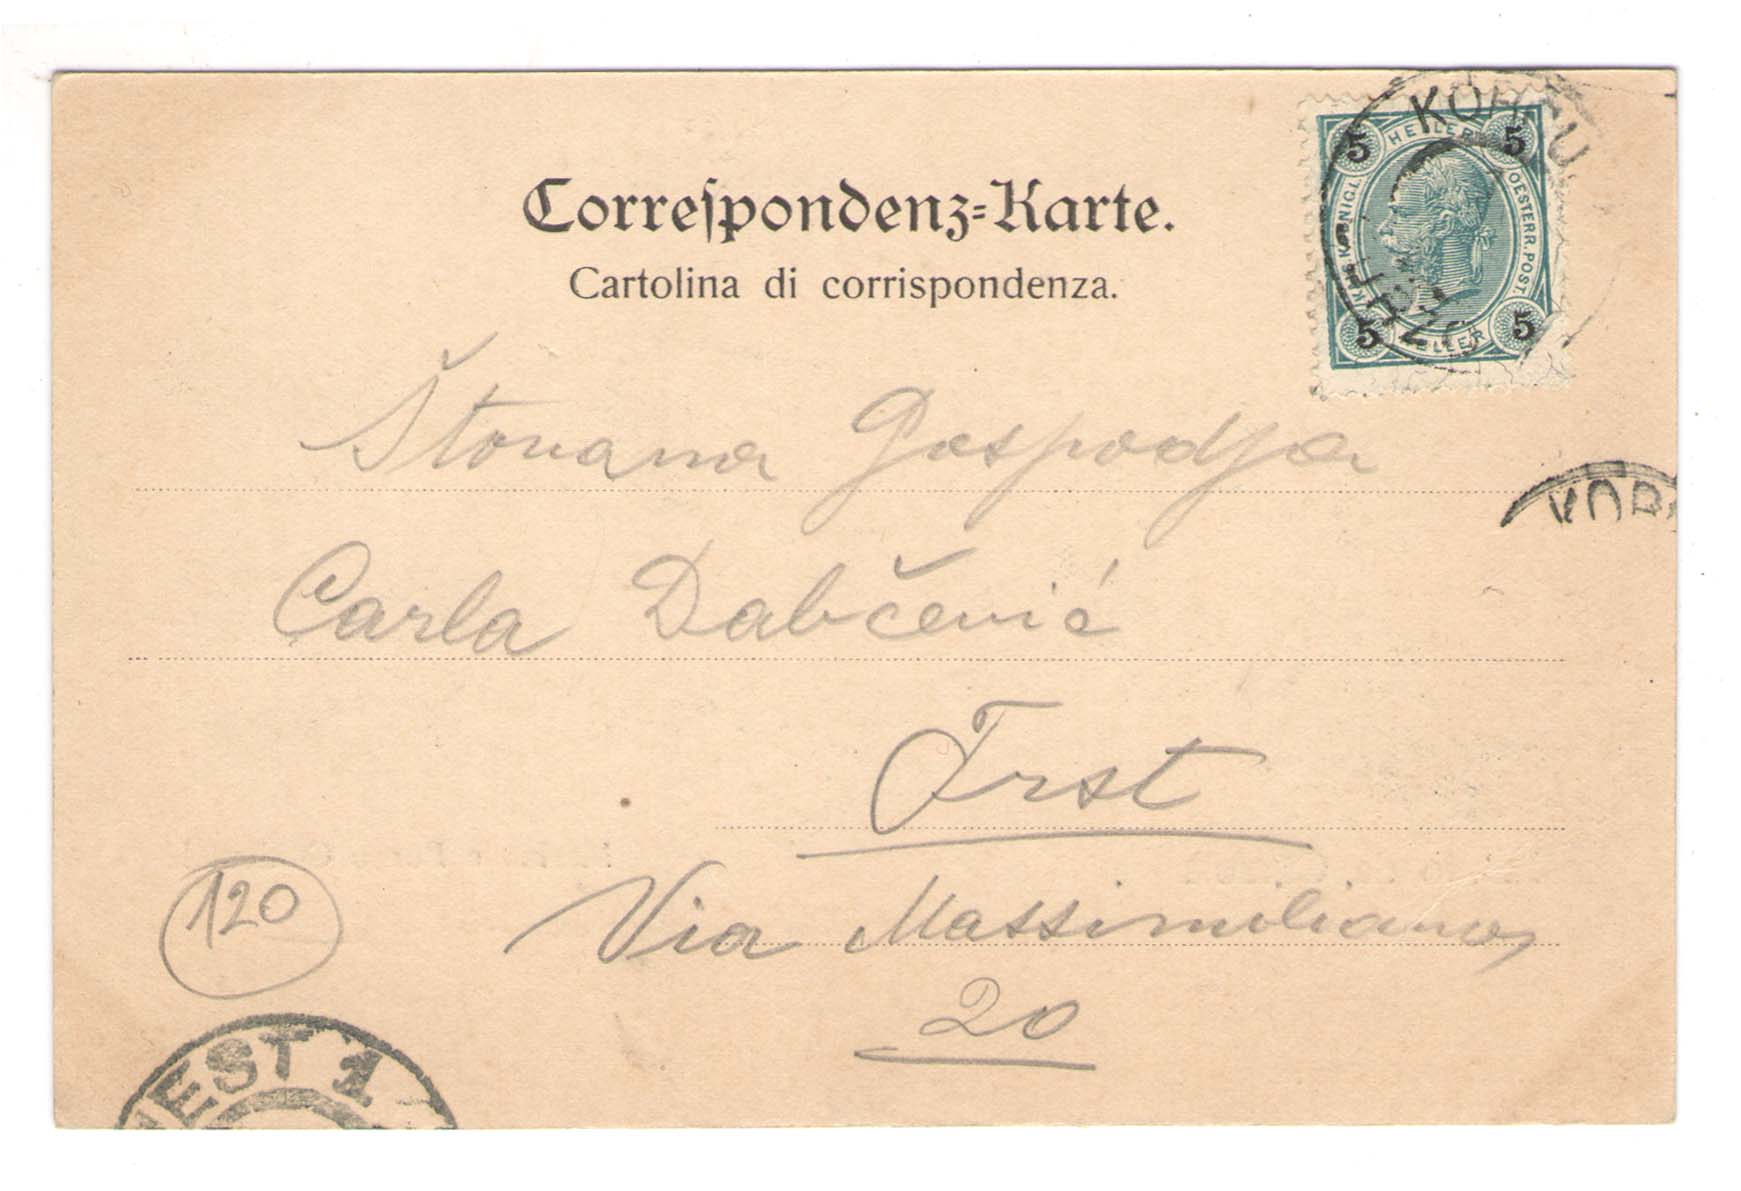 Correſpondenz=Karte.
Cartolina di corrispondenza.
5 HELLER 5
KAIS. KÖNIGL. OESTERR. POST.
5 HELLER 5
Štovana Gospodja
Carla Dabčević
Trst
Via Massimiliano,
20
120
IEST 1